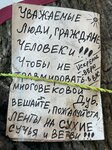 УВАЖАЕМЫЕ
ЛЮДИ, ГРАЖДАНЕ
ЧЕЛОВЕКИ!!!
ЧТОБЫ НЕ
ТРАВМИРОВАТЬ
МНОГОВЕКОВОЙ
ДУБ,
ВЕШАЙТЕ, ПОЖАЛУЙСТА
ЛЕНТЫ НА СУХИЕ
СУЧЬЯ И ВЕТВИ!!!